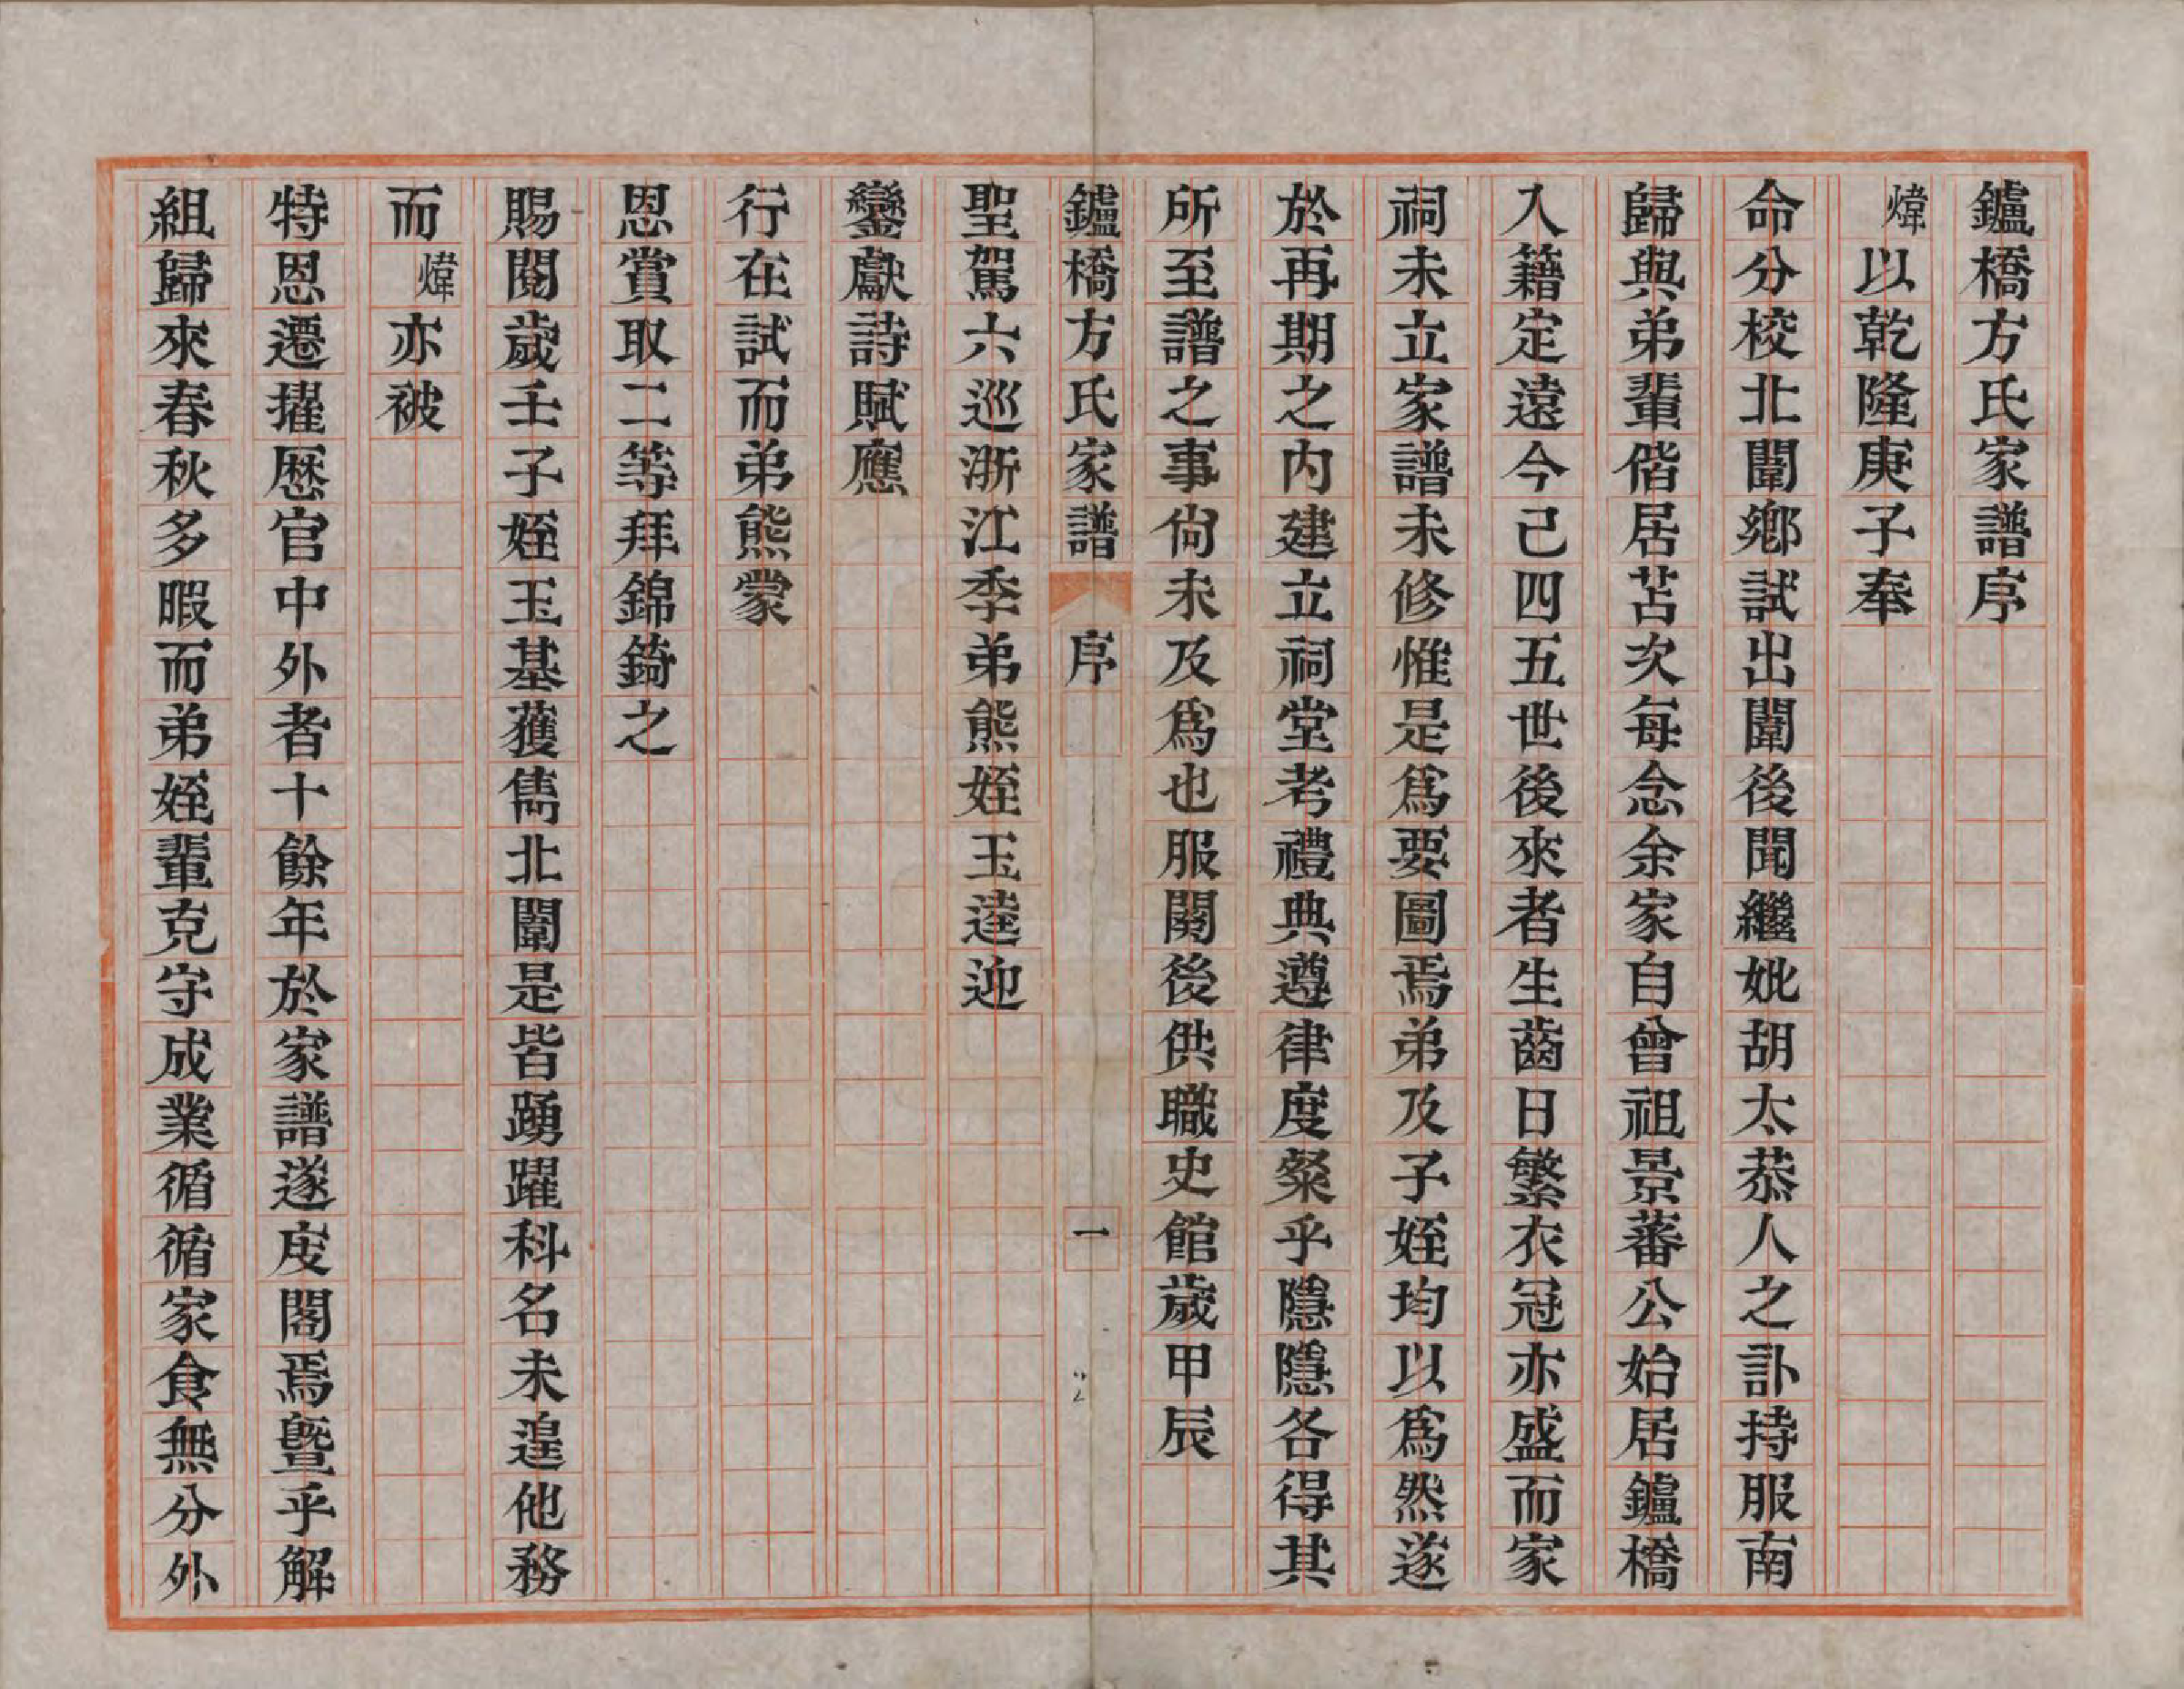 鑪橋方氏家譜序
煒以乾隆庚子奉
命分校北闈鄉試出闈後聞繼妣胡太恭人之訃持服南
歸與弟輩偕居苫次每念余家自曾祖景蕃公始居鑪橋
入籍定遠今已四五世後來者生齒日繁衣冠亦盛而家
祠未立家譜未修惟是為要圖焉弟及子姪均以為然遂
於再期之內建立祠堂考禮典遵律度粲乎隱隱各得其
所至譜之事尙未及為也服闋後供職史館歲甲辰
鑪橋方氏家譜 序 一
聖駕六巡浙江季弟熊姪玉逵迎
鑾獻詩賦應
行在試而弟熊蒙
恩賞取二等拜錦錡之
賜閱歲壬子姪玉基獲儁北闈是皆踴躍科名未遑他務
而煒亦被
特恩遷擢歷官中外者十餘年於家譜遂庋閣焉曁乎解
組歸來春秋多暇而弟姪輩克守成業循循家食無分外